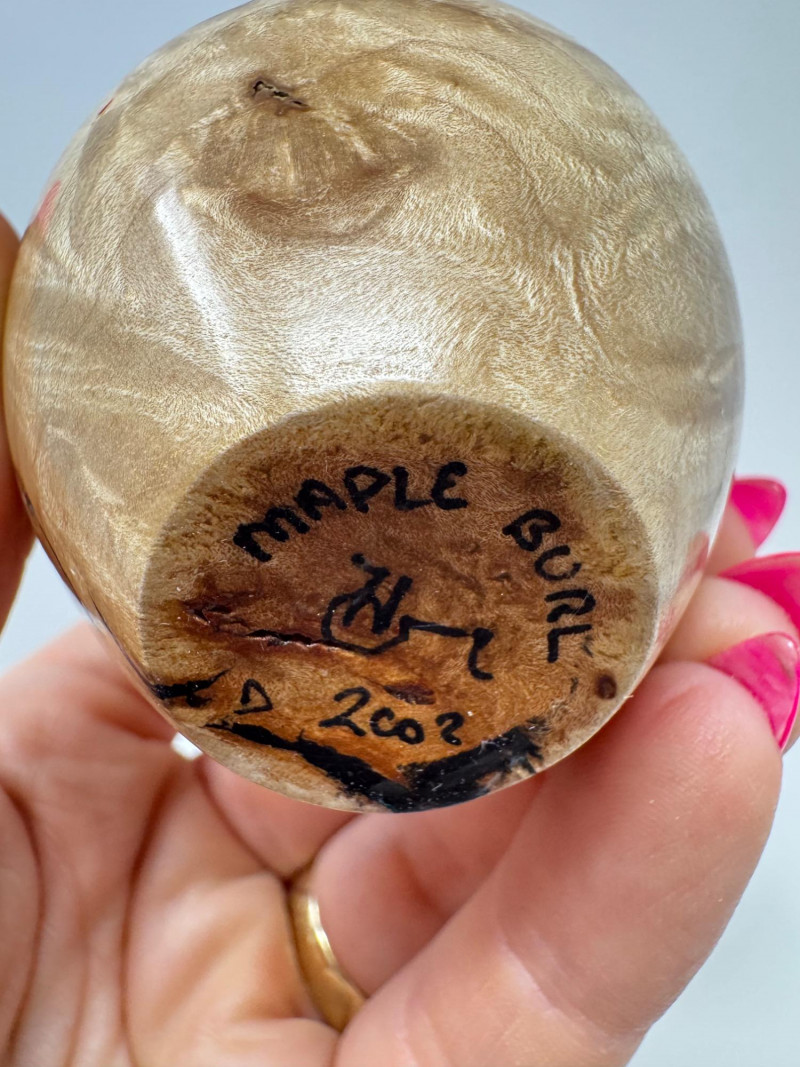 MAPLE BURL
D 2002